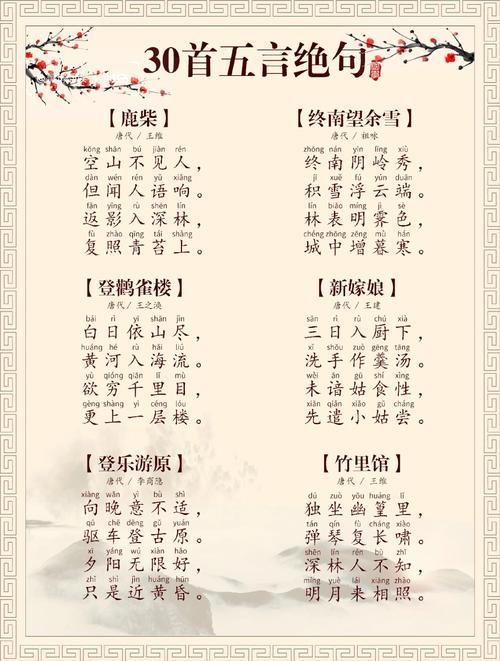 30首五言绝句
【鹿柴】
唐代 / 王维
kōng shān bú jiàn rén
空山不见人，
dàn wén rén yǔ xiǎng
但闻人语响。
fǎn yǐng rù shēn lín
返影入深林，
fù zhào qīng tái shàng
复照青苔上。
【终南望余雪】
唐代 / 祖咏
zhōng nán yīn lǐng xiù
终南阴岭秀，
jī xuě fú yún duān
积雪浮云端。
lín biǎo míng jì sè
林表明霁色，
chéng zhōng zēng mù hán
城中增暮寒。
【登鹳雀楼】
唐代 / 王之涣
bái rì yī shān jìn
白日依山尽，
huáng hé rù hǎi liú
黄河入海流。
yù qióng qiān lǐ mù
欲穷千里目，
gèng shàng yī céng lóu
更上一层楼。
【新嫁娘】
唐代 / 王建
sān rì rù chú xià
三日入厨下，
xǐ shǒu zuò gēng tāng
洗手作羹汤。
wèi ān gū shí xìng
未谙姑食性，
xiān qiǎn xiǎo gū cháng
先遣小姑尝。
【登乐游原】
唐代 / 李商隐
xiàng wǎn yì bú shì
向晚意不适，
qū chē dēng gǔ yuán
驱车登古原。
xī yáng wú xiàn hǎo
夕阳无限好，
zhǐ shì jìn huáng hūn
只是近黄昏。
【竹里馆】
唐代 / 王维
dú zuò yōu huáng lǐ
独坐幽篁里，
tán qín fù cháng xiào
弹琴复长啸。
shēn lín rén bù zhī
深林人不知，
míng yuè lái xiàng zhào
明月来相照。